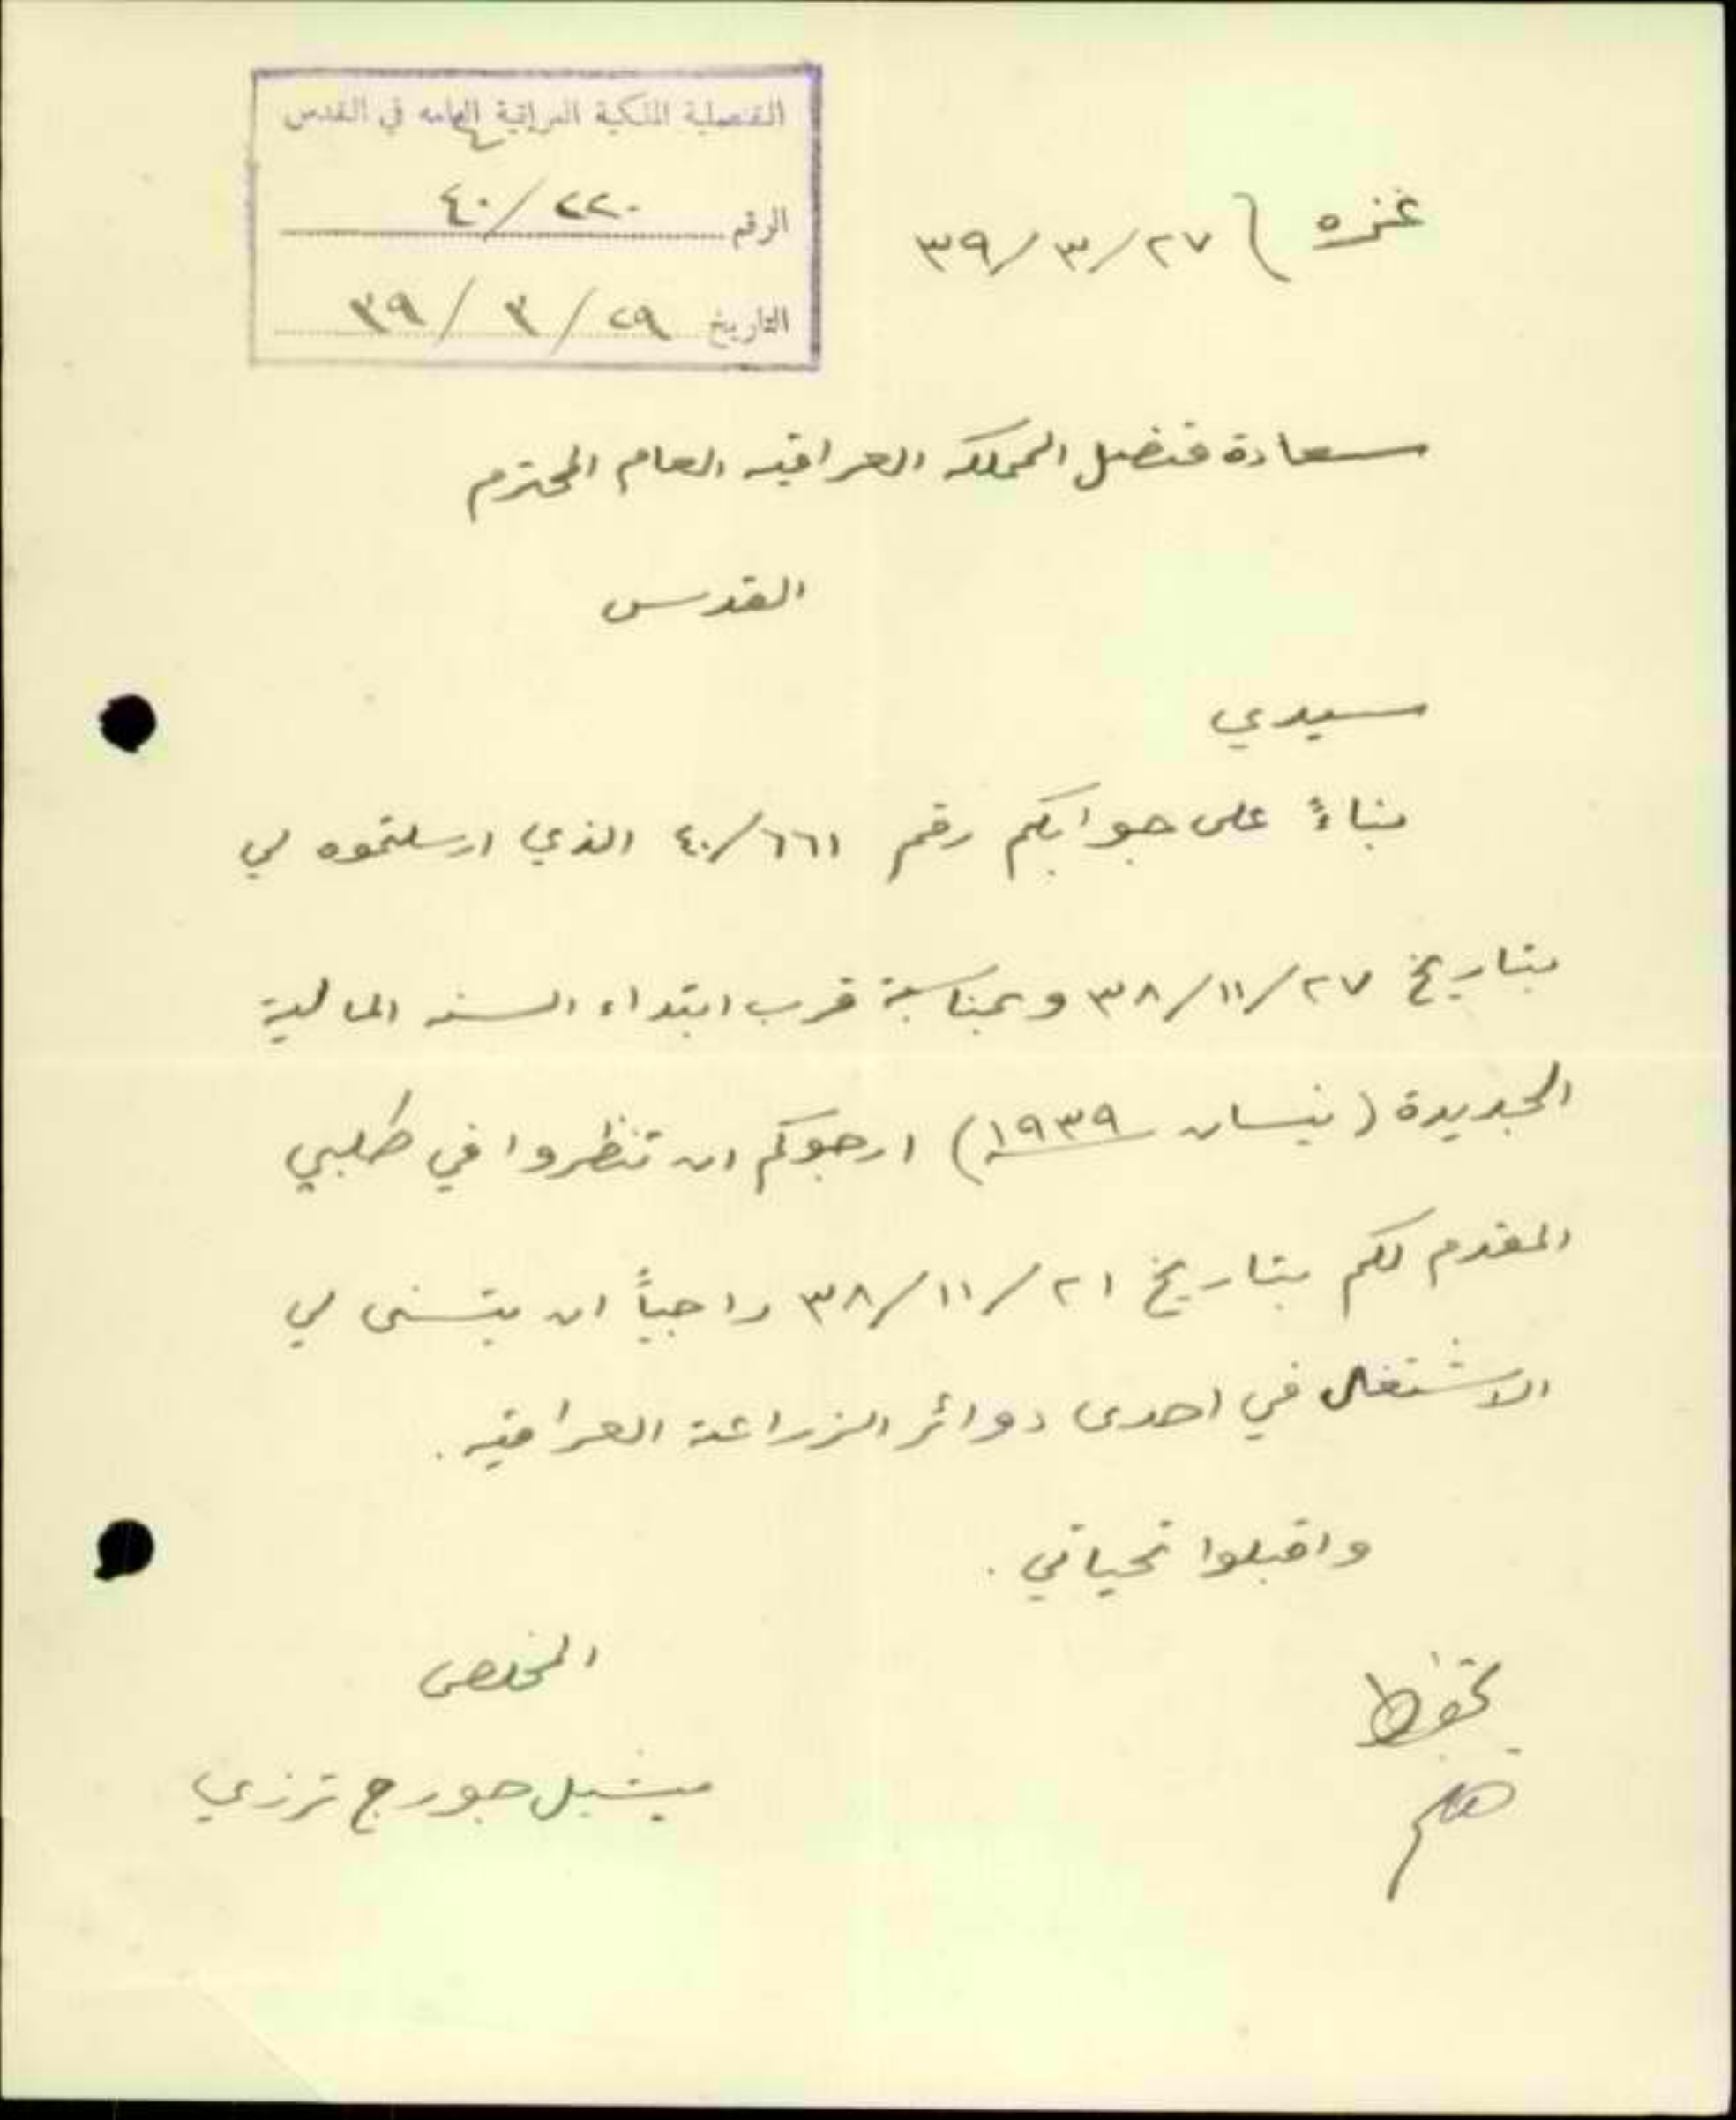 القنصلية الملكية العراقية العامه في القدس
الرقم ٢٢٠/٤٠
التاريخ ٢٩/٣/٣٩
غزه ٢٧/٣/٣٩
سعادة قنصل المملكه العراقيه العام المحترم
القدس
سيدي
بناءً على جوابكم رقم ٦٦١/٤٠ الذي ارسلتموه لي
بتاريخ ٢٧/١١/٣٨ وبمناسبة قرب ابتداء السنه المالية
الجديدة (نيسان ١٩٣٩) ارجوكم ان تنظروا في طلبي
المقدم لكم بتاريخ ٢١/١١/٣٨ راجياً ان يتسنى لي
الاشتغال في احدى دوائر الزراعة العراقيه.
واقبلوا تحياتي.
المخلص
ميشيل جورج ترزي
تحفظ